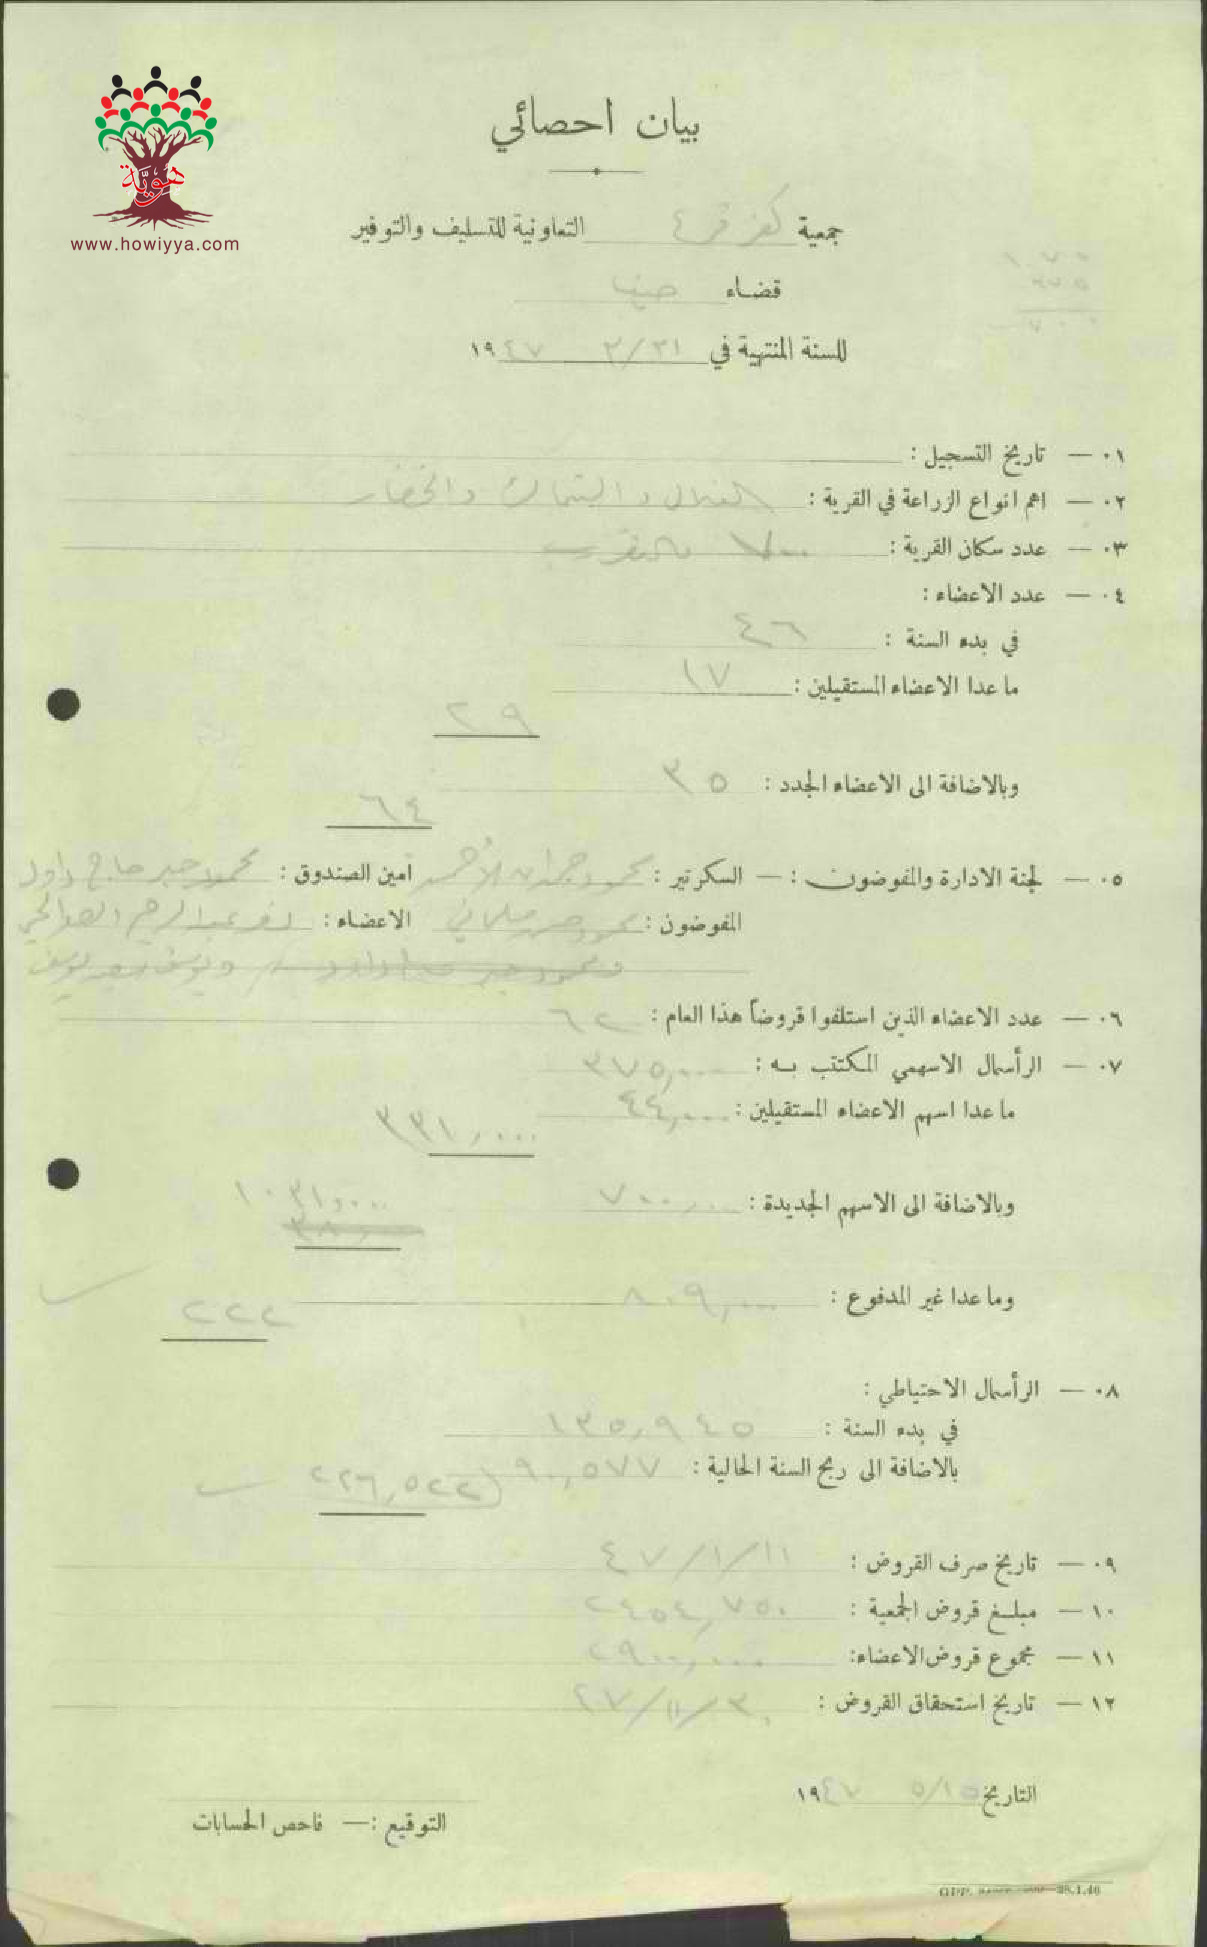 هويّة
www.howiyya.com
بيان احصائي
جمعية كفر قرع التعاونية للتسليف والتوفير
قضاء حيفا
للسنة المنتهية في ٣١/٣ ١٩٤٧
٠١ — تاريخ التسجيل :
٠٢ — اهم انواع الزراعة في القرية : والخضار
٠٣ — عدد سكان القرية : ٧٠٠ بالتقريب
٠٤ — عدد الاعضاء :
في بدء السنة : ٤٦
ما عدا الاعضاء المستقيلين : ١٧
٢٩
وبالاضافة الى الاعضاء الجدد : ٣٥
٦٤
٠٥ — لجنة الادارة والمفوضون : — السكرتير : محمود امين الصندوق : محمود حاج داود
المفوضون : محمود الاعضاء : عبد الرحيم
ويوسف سعيد يوسف
٠٦ — عدد الاعضاء الذين استلفوا قروضاً هذا العام : ٦٢
٠٧ — الرأسمال الاسهمي المكتتب به : ٣٧٥,٠٠٠
ما عدا اسهم الاعضاء المستقيلين : ٤٤,٠٠٠
٣٣١,٠٠٠
وبالاضافة الى الاسهم الجديدة : ٧٠٠,٠٠٠ ١٠٣١,٠٠٠
وما عدا غير المدفوع : ٨٠٩,٠٠٠
٢٢٢
٠٨ — الرأسمال الاحتياطي :
في بدء السنة : ١٣٥,٩٤٥
بالاضافة الى ربح السنة الحالية : ٩٠,٥٧٧ ٢٢٦,٥٢٢
٠٩ — تاريخ صرف القروض : ١١/١/٤٧
١٠ — مبلغ قروض الجمعية : ٢٤٥٤,٧٥٠
١١ — مجموع قروض الاعضاء: ٢٩٠٠,٠٠٠
١٢ — تاريخ استحقاق القروض : ٣٠/١١/٤٧
التاريخ ١٥/٥ ١٩٤٧
التوقيع : — فاحص الحسابات
28.1.46